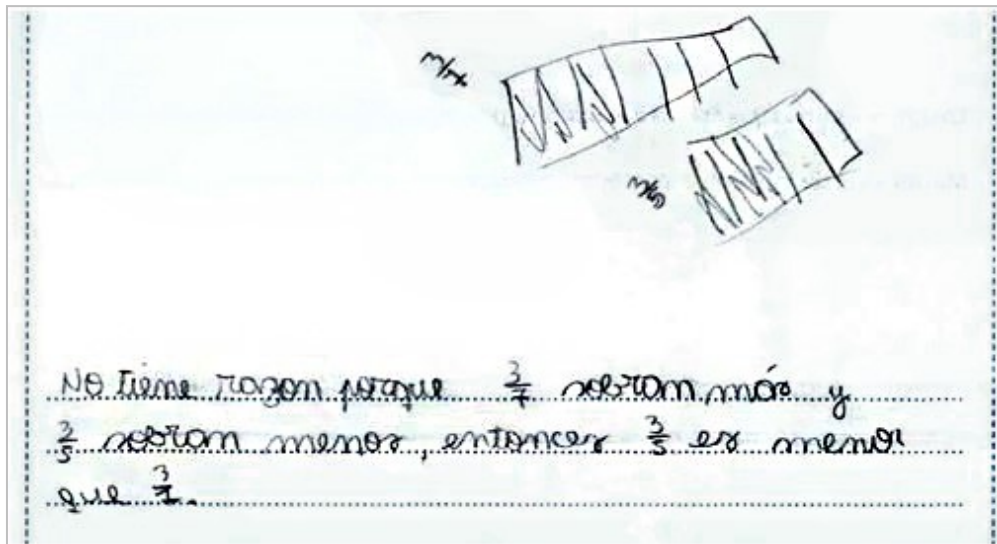 3/7
3/5
No tiene razon porque 3/7 sobran más y
3/5 sobran menos, entonces 3/5 es menor
que 3/7.